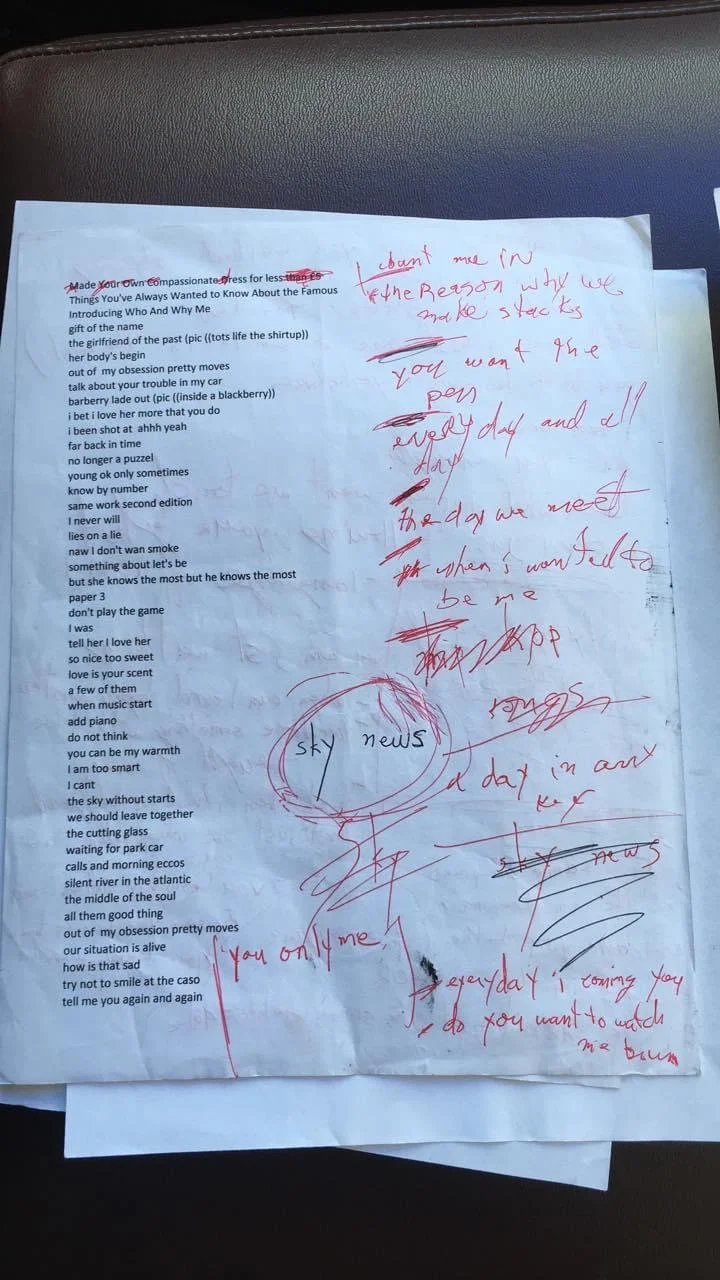 Made Your Own Compassionate Dress for less than £5
Things You've Always Wanted to Know About the Famous
Introducing Who And Why Me
gift of the name
the girlfriend of the past (pic ((tots life the shirtup))
her body's begin
out of my obsession pretty moves
talk about your trouble in my car
barberry lade out (pic ((inside a blackberry))
i bet i love her more that you do
i been shot at ahhh yeah
far back in time
no longer a puzzel
young ok only sometimes
know by number
same work second edition
I never will
lies on a lie
naw I don't wan smoke
something about let's be
but she knows the most but he knows the most
paper 3
don't play the game
I was
tell her I love her
so nice too sweet
love is your scent
a few of them
when music start
add piano
do not think
you can be my warmth
I am too smart
I cant
the sky without starts
we should leave together
the cutting glass
waiting for park car
calls and morning eccos
silent river in the atlantic
the middle of the soul
all them good thing
out of my obsession pretty moves
our situation is alive
how is that sad
try not to smile at the caso
tell me you again and again
count me in
the Reason why we
make stacks
you want the
pen
everyday and all
day
the day we meet
when i wanted to
be me
songs
sky news
a day in any
key
sky
sky news
you only me
everyday i coming you
do you want to watch
me burn